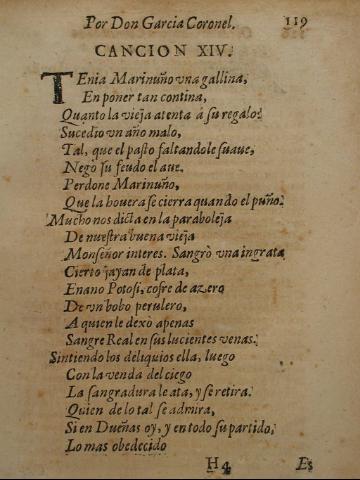 Por Don Garcia Coronel. 119
CANCION XIV.
TEnia Marinuño vna gallina,
En poner tan contina,
Quanto la vieja atenta à su regalo:
Sucediò vn año malo,
Tal, que el pasto faltandole suaue,
Negò su feudo el aue.
Perdone Marinuño,
Que la houera se cierra quando el puño.
Mucho nos dicta en la paraboleja
De nuestra buena vieja
Monseñor interes. Sangrò vna ingrata
Cierto jayan de plata,
Enano Potosi, cofre de azero
De vn bobo perulero,
A quien le dexò apenas
Sangre Real en sus lucientes venas.
Sintiendo los deliquios ella, luego
Con la venda del ciego
La sangradura le ata, y se retira.
Quien de lo tal se admira,
Si en Dueñas oy, y en todo su partido,
Lo mas obedecido
H4 Es